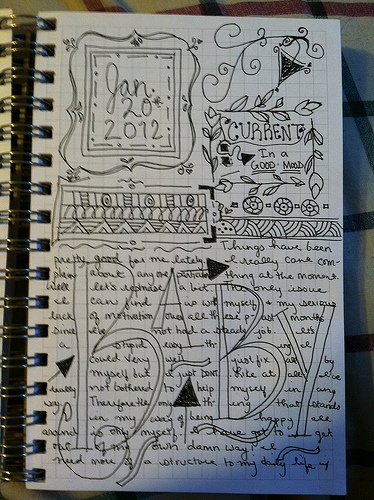 Jan.
20th
2012
CURRENT
In a
GOOD MOOD
Things have been
pretty good for me lately. I really cant com-
plain about any one thing at the moment.
Well let's rephase a bit. The only issue
I can find is up with myself & my serious
lack of motivation over all these past months
since I've not had a steady job. It's
a stupid easy th
could very well just fix all by
myself but I just DONT like at all. I've
really not bothered to help myself in any
way. Therefore the only thing that stands
in my way of being happy all
around is only myself. I have got to get
out of my own damn way! I
need more of a structure to my daily life
BABY